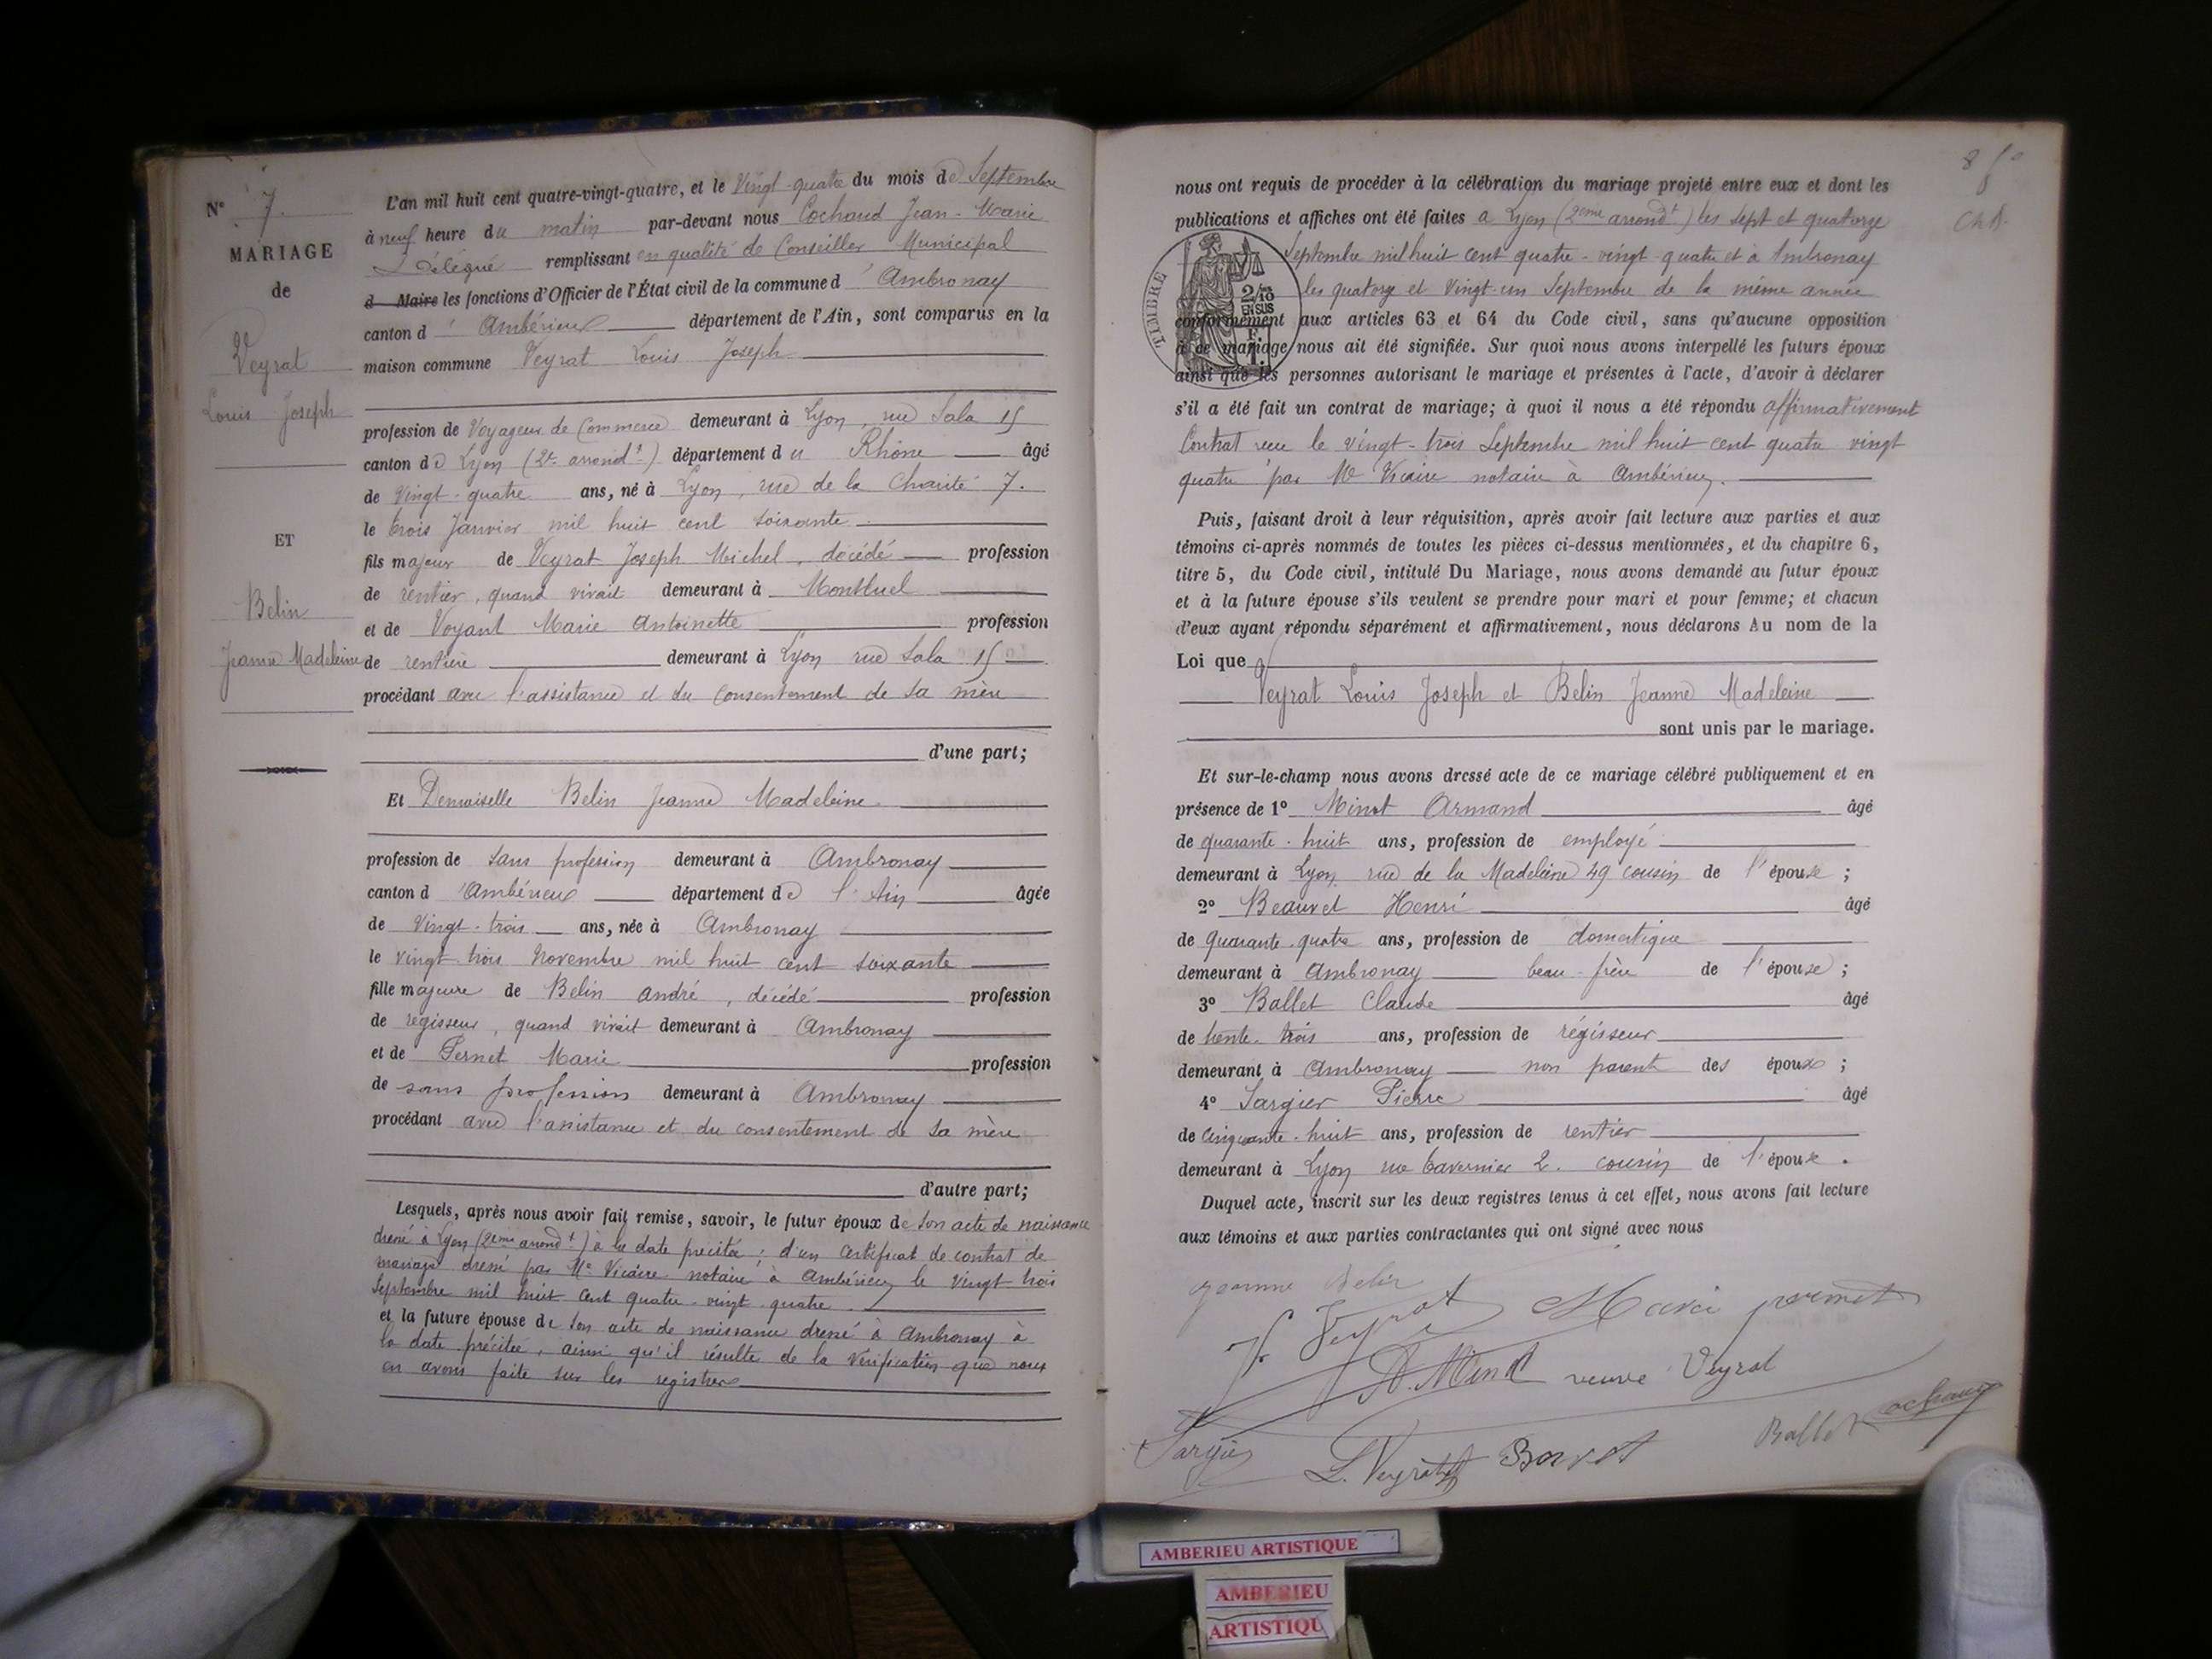 N° 7.
MARIAGE
de
Veyrat
Louis Joseph
ET
Belin
Jeanne Madeleine
L'an mil huit cent quatre-vingt-quatre, et le Vingt-quatre du mois de Septembre
à neuf heure du matin par-devant nous Cochaud Jean-Marie
Délégué remplissant en qualité de Conseiller Municipal
d Maire les fonctions d'Officier de l'État civil de la commune d'Ambronay
canton d'Ambérieux département de l'Ain, sont comparus en la
maison commune Veyrat Louis Joseph
profession de Voyageur de Commerce demeurant à Lyon, rue Sala 15
canton de Lyon (2e arrondt) département du Rhône âgé
de Vingt-quatre ans, né à Lyon, rue de la Charité 7.
le trois Janvier mil huit cent soixante
fils majeur de Veyrat Joseph Michel, décédé profession
de rentier, quand vivait demeurant à Montluel
et de Voyant Marie Antoinette profession
de rentière demeurant à Lyon rue Sala 15
procédant avec l'assistance et du consentement de sa mère
d'une part;
Et Demoiselle Belin Jeanne Madeleine
profession de sans profession demeurant à Ambronay
canton d'Ambérieux département de l'Ain âgée
de Vingt-trois ans, née à Ambronay
le vingt-trois Novembre mil huit cent soixante
fille majeure de Belin André, décédé profession
de régisseur, quand vivait demeurant à Ambronay
et de Pernet Marie profession
de sans profession demeurant à Ambronay
procédant avec l'assistance et du consentement de sa mère
d'autre part;
Lesquels, après nous avoir fait remise, savoir, le futur époux de son acte de naissance
dressé à Lyon (2eme arrondt) à la date précitée; d'un certificat de contrat de
mariage dressé par Me Vicaire notaire à Ambérieux le vingt trois
Septembre mil huit cent quatre-vingt-quatre.
et la future épouse de son acte de naissance dressé à Ambronay à
la date précitée, ainsi qu'il résulte de la vérification que nous
en avons faite sur les registres
8
nous ont requis de procéder à la célébration du mariage projeté entre eux et dont les
publications et affiches ont été faites à Lyon (2eme arrondt) les sept et quatorze
Septembre mil huit cent quatre-vingt-quatre et à Ambronay
les quatorze et Vingt-un Septembre de la même année
TIMBRE
2/10
EN SUS
F.
1.
conformément aux articles 63 et 64 du Code civil, sans qu'aucune opposition
à ce mariage nous ait été signifiée. Sur quoi nous avons interpellé les futurs époux
ainsi que les personnes autorisant le mariage et présentes à l'acte, d'avoir à déclarer
s'il a été fait un contrat de mariage; à quoi il nous a été répondu affirmativement
Contrat reçu le vingt-trois Septembre mil huit cent quatre vingt
quatre par Me Vicaire notaire à Ambérieux.
Puis, faisant droit à leur réquisition, après avoir fait lecture aux parties et aux
témoins ci-après nommés de toutes les pièces ci-dessus mentionnées, et du chapitre 6,
titre 5, du Code civil, intitulé Du Mariage, nous avons demandé au futur époux
et à la future épouse s'ils veulent se prendre pour mari et pour femme; et chacun
d'eux ayant répondu séparément et affirmativement, nous déclarons Au nom de la
Loi que
Veyrat Louis Joseph et Belin Jeanne Madeleine
sont unis par le mariage.
Et sur-le-champ nous avons dressé acte de ce mariage célébré publiquement et en
présence de 1° Minot Armand âgé
de quarante-huit ans, profession de employé
demeurant à Lyon rue de la Madeleine 49 cousin de l'épouse;
2° Beauvet Henri âgé
de quarante-quatre ans, profession de domestique
demeurant à Ambronay beau-frère de l'épouse;
3° Ballet Claude âgé
de trente-trois ans, profession de régisseur
demeurant à Ambronay non parent des époux;
4° Sargier Pierre âgé
de cinquante-huit ans, profession de rentier
demeurant à Lyon rue Tavernier 2. cousin de l'épouse.
Duquel acte, inscrit sur les deux registres tenus à cet effet, nous avons fait lecture
aux témoins et aux parties contractantes qui ont signé avec nous
Jeanne Belin
Veyrat Marie pernet
A. Minot veuve Veyrat
Ballet Cochaud
Sargier L. Veyrat
AMBERIEU ARTISTIQUE
AMBERIEU
ARTISTIQU